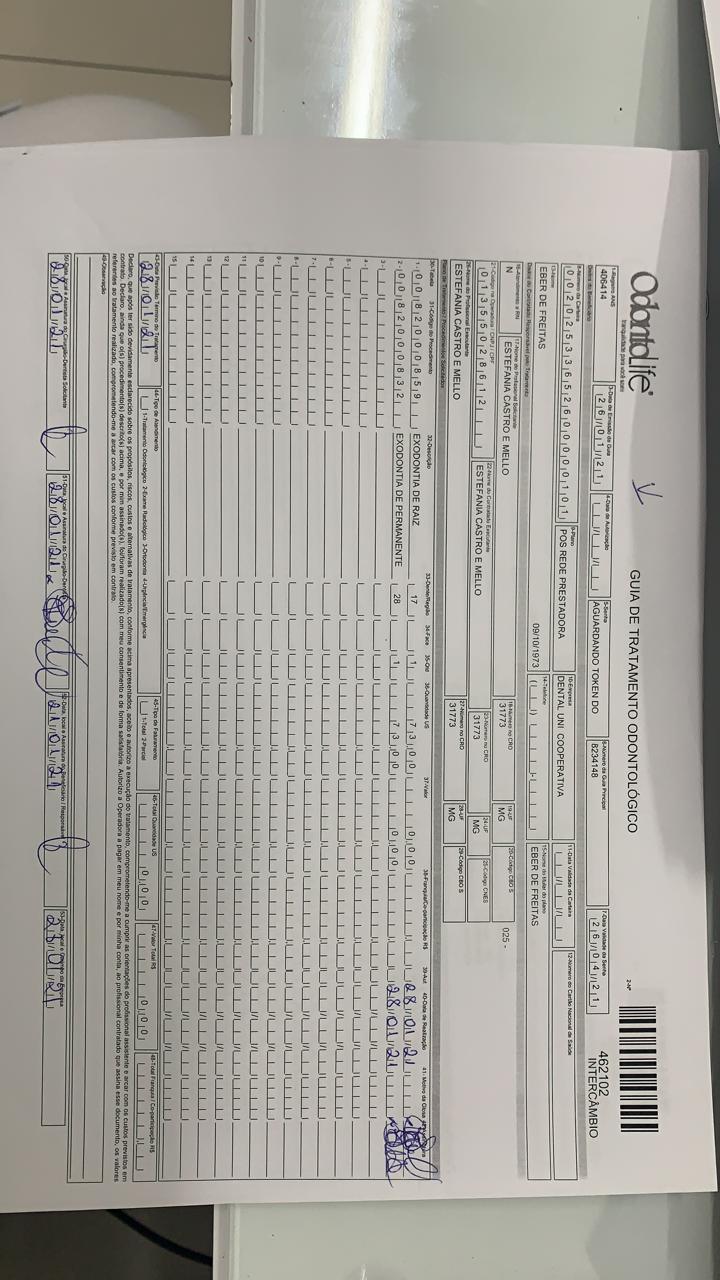 OdontoLife®
tranquilidade para você sorrir
GUIA DE TRATAMENTO ODONTOLÓGICO
2-Nº
462102
INTERCÂMBIO
1-Registro ANS
406414
3-Data de Emissão da Guia
26/01/21
4-Data de Autorização
5-Senha
AGUARDANDO TOKEN DO
6-Número da Guia Principal
8234148
7-Data Validade da Senha
26/04/21
Dados do Beneficiário
8-Número da Carteira
00202533652600000101
9-Plano
POS REDE PRESTADORA
10-Empresa
DENTAL UNI COOPERATIVA
11-Data Validade da Carteira
12-Número do Cartão Nacional de Saúde
13-Nome
EBER DE FREITAS
09/10/1973
14-Telefone
15-Nome do titular do plano
EBER DE FREITAS
Dados do Contratado Responsável pelo Tratamento
16-Atendimento a RN
N
17-Nome do Profissional Solicitante
ESTEFANIA CASTRO E MELLO
18-Número no CRO
31773
19-UF
MG
20-Código CBO S
025 -
21-Código na Operadora / CNPJ / CPF
01355028612
22-Nome do Contratado Executante
ESTEFANIA CASTRO E MELLO
23-Número no CRO
31773
24-UF
MG
25-Código CNES
26-Nome do Profissional Executante
ESTEFANIA CASTRO E MELLO
27-Número no CRO
31773
28-UF
MG
29-Código CBO S
Plano de Tratamento / Procedimentos Solicitados
30-Tabela 31-Código do Procedimento 32-Descrição 33-Dente/Região 34-Face 35-Qtd 36-Quantidade US 37-Valor 38-Franquia/Co-participação R$ 39-Aut 40-Data de Realização 41- Motivo da Glosa
1 - 00 82000859 EXODONTIA DE RAIZ 17 1 73,00 0,00 28/01/21
2 - 00 82000832 EXODONTIA DE PERMANENTE 28 1 73,00 0,00 28/01/21
3 -
4 -
5 -
6 -
7 -
8 -
9 -
10
11
12
13
14
15
43-Data Previsão Término do Tratamento
28/01/21
44-Tipo de Atendimento
1-Tratamento Odontológico 2-Exame Radiológico 3-Ortodontia 4-Urgência/Emergência
45-Tipo de Faturamento
1-Total 2-Parcial
46-Total Quantidade US
0,00
47-Valor Total R$
0,00
48-Total Franquia / Co-participação R$
Declaro, que após ter sido devidamente esclarecido sobre os propósitos, riscos, custos e alternativas de tratamento, conforme acima apresentados, aceito e autorizo a execução do tratamento, comprometendo-me a cumprir as orientações do profissional assistente e arcar com os custos previstos em
contrato. Declaro, ainda que o(s) procedimento(s) descrito(s) acima, e por mim assinado(s), foi/foram realizado(s) com meu consentimento e de forma satisfatória. Autorizo a Operadora a pagar em meu nome e por minha conta, ao profissional contratado que assina esse documento, os valores
referentes ao tratamento realizado, comprometendo-me a arcar com os custos conforme previsto em contrato.
49-Observação
50-Data, local e Assinatura do Cirurgião-Dentista Solicitante
28/01/21
51-Data, local e Assinatura do Cirurgião-Dentista
28/01/21
52-Data, local e Assinatura do Beneficiário / Responsável
21/01/21
28/01/21